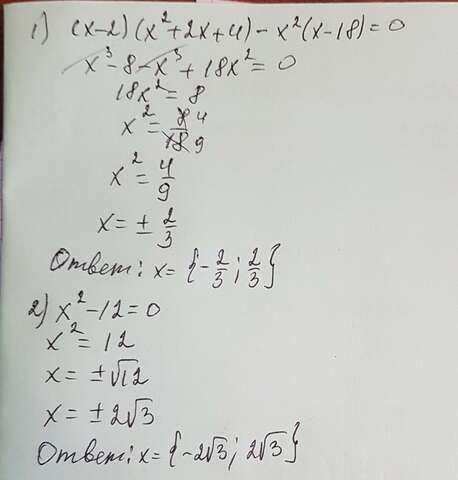 1) (x-2)(x²+2x+4)-x²(x-18)=0
x³-8-x³+18x²=0
18x²=8
x²=8/18 4/9
x²=4/9
x=±2/3
Ответ: x={-2/3; 2/3}
2) x²-12=0
x²=12
x=±√12
x=±2√3
Ответ: x={-2√3; 2√3}